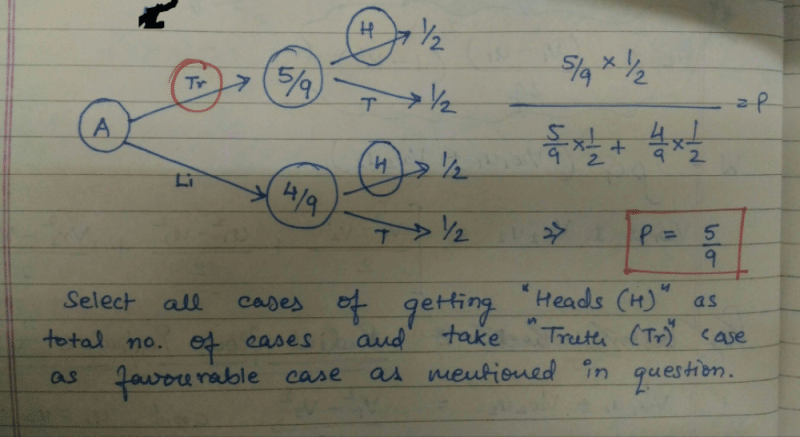 H 1/2
Tr 5/9
T 1/2
A
5/9 × 1/2
5/9 × 1/2 + 4/9 × 1/2 = P
H 1/2
Li 4/9
T 1/2
⇒ P = 5/9
Select all cases of getting "Heads (H)" as
total no. of cases and take "Truth (Tr)" case
as favourable case as mentioned in question.